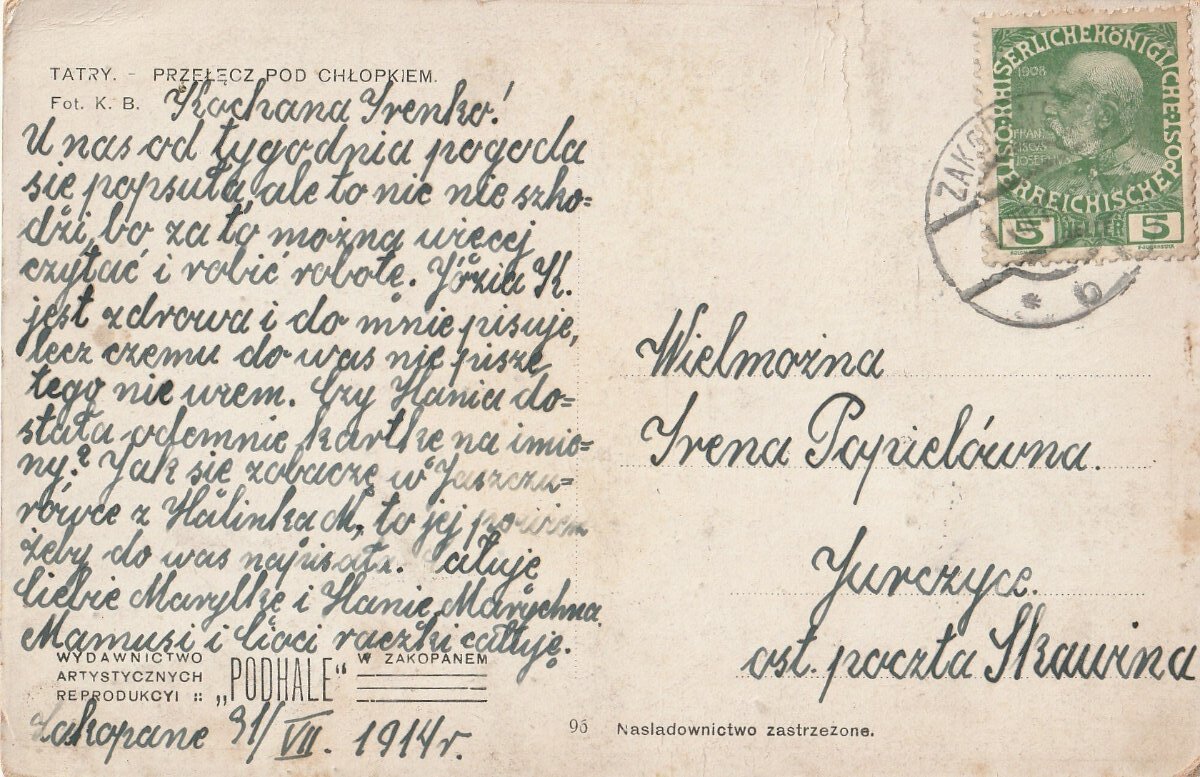 TATRY. - PRZEŁĘCZ POD CHŁOPKIEM.
Fot. K. B.
Kochana Irenko!
U nas od tygodnia pogoda
się popsuła, ale to nic nie szko=
dzi, bo za to można więcej
czytać i robić robotę. Józia K.
jest zdrowa i do mnie pisuje,
lecz czemu do was nie pisze
tego nie wiem. Czy Hania do=
stała odemnie kartkę na imie=
ny? Jak się zobaczę w Jaszczu=
rówce z Halinką M, to jej powiem
żeby do was napisała. Całuję
Ciebie Marylkę i Hanię, Marychna.
Mamusi i Cioci rączki całuję.
WYDAWNICTWO
ARTYSTYCZNYCH
REPRODUKCYI :: „PODHALE" W ZAKOPANEM
Zakopane 31/VII. 1914 r.
ÖSTERREICHISCHE POST
KAISERLICHE KÖNIGLICHE
1908
FRANCISCVS JOSEPH I
5 HELLER 5
ZAKOP
* b
Wielmożna
Irena Popielówna.
Jurczyce.
ost. poczta Skawina
96 Nasladownictwo zastrzeżone.